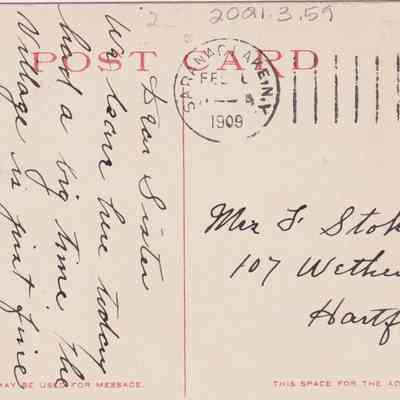 2 2001.3.59
POST CARD
SARANAC LAKE, N.Y.
FEB
1909
Dear Sister
We leave here today
had a big time The
Village is just fine
Mrs F Stok
107 Wethe
Hartf
MAY BE USED FOR MESSAGE.
THIS SPACE FOR THE AD